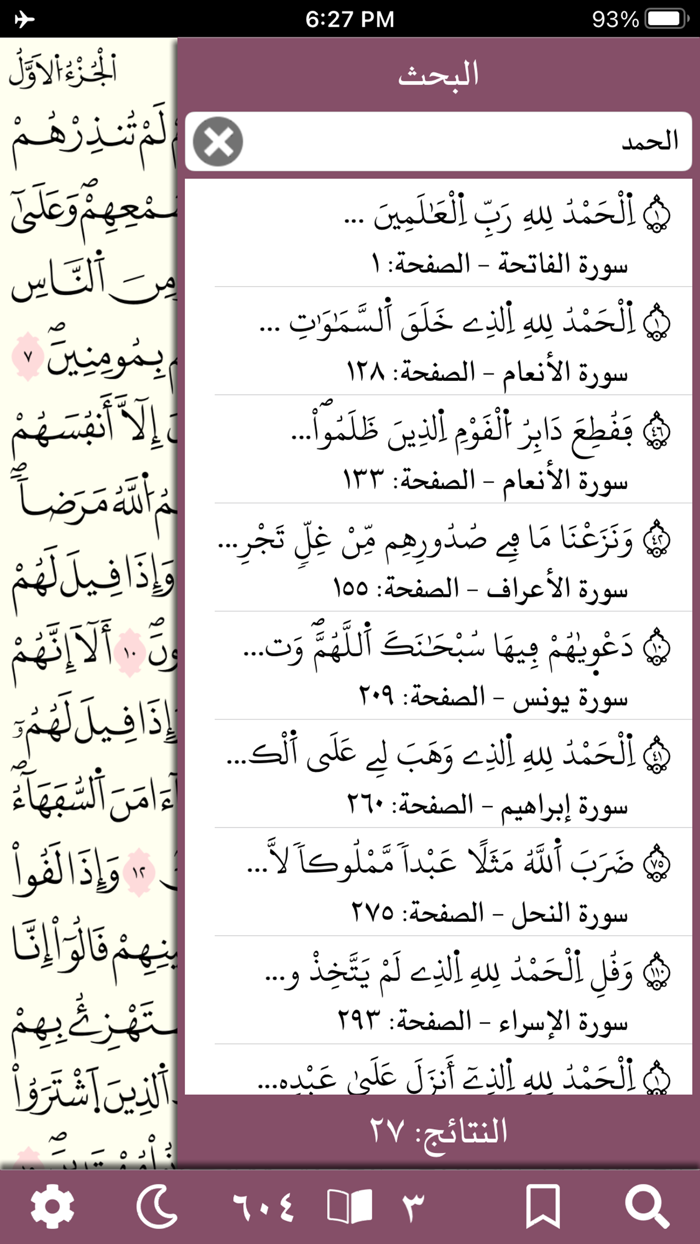 6:27 PM
93%
البحث
الحمد
١ اِ۬لْحَمْدُ لِلهِ رَبِّ اِ۬لْعَٰلَمِينَ ...
سورة الفاتحة - الصفحة: ١
١ اِ۬لْحَمْدُ لِلهِ اِ۬لذِے خَلَقَ اَ۬لسَّمَٰوَٰتِ ...
سورة الأنعام - الصفحة: ١٢٨
٤٦ فَقُطِعَ دَابِرُ اُ۬لْقَوْمِ اِ۬لذِينَ ظَلَمُواْۖ...
سورة الأنعام - الصفحة: ١٣٣
٤٢ وَنَزَعْنَا مَا فِے صُدُورِهِم مِّنْ غِلّٖ تَجْرِ...
سورة الأعراف - الصفحة: ١٥٥
١٠ دَعْوۭيٰهُمْ فِيهَا سُبْحَٰنَكَ اَ۬للَّهُمَّۖ وَت...
سورة يونس - الصفحة: ٢٠٩
٤١ اِ۬لْحَمْدُ لِلهِ اِ۬لذِے وَهَبَ لِے عَلَى اَ۬لْك...
سورة إبراهيم - الصفحة: ٢٦٠
٧٥ ضَرَبَ اَ۬للَّهُ مَثَلًا عَبْداٗ مَّمْلُوكاٗ لاَّ...
سورة النحل - الصفحة: ٢٧٥
١١٠ وَقُلِ اِ۬لْحَمْدُ لِلهِ اِ۬لذِے لَمْ يَتَّخِذْ و...
سورة الإسراء - الصفحة: ٢٩٣
١ اِ۬لْحَمْدُ لِلهِ اِ۬لذِےٓ أَنزَلَ عَلَىٰ عَبْدِهِ...
النتائج: ٢٧
اَ۬لْجُزْءُ اُ۬لَاوَّلُ
لَمْ تُنذِرْهُمْ
وَعَلَىٰٓ
مِنَ اَ۬لنَّاسِ
بِمُومِنِينَۖ ٧
إِلَّآ أَنفُسَهُمْ
اُ۬للَّهُ مَرَضاٗۖ
وَإِذَا قِيلَ لَهُمْ
١٠ أَلَآ إِنَّهُمْ
إِذَا قِيلَ لَهُمُۥٓ
ءَامَنَ اَ۬لسُّفَهَآءُۖ
١٢ وَإِذَا لَقُواْ
قَالُوٓاْ إِنَّا
بِهِمْ
اَ۬لذِينَ اَ۪شْتَرَوُاْ
٣
٦٠٤